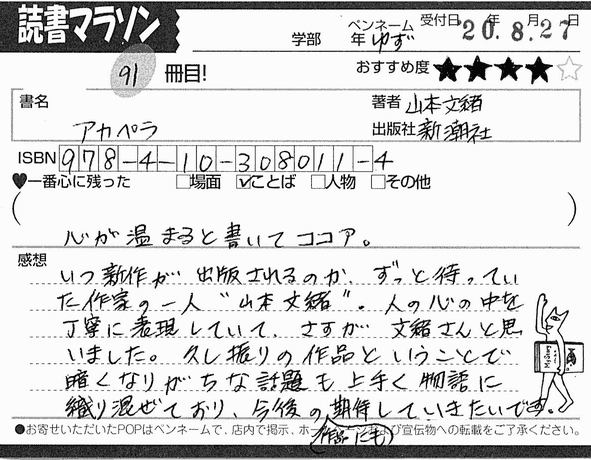 読書マラソン
学部 年 ペンネーム ゆず 受付日 20年8月27日
91冊目!
おすすめ度 ★★★★☆
書名 アカペラ
著者 山本文緒
出版社 新潮社
ISBN 978-4-10-308011-4
♥一番心に残った □場面 ☑ことば □人物 □その他
(心が温まると書いてココア。)
感想
いつ新作が出版されるのか、ずっと待ってい
た作家の一人“山本文緒”。人の心の中を
丁寧に表現していて、さすが文緒さんと思
いました。久し振りの作品ということで
暗くなりがちな話題も上手く物語に
織り混ぜており、今後の期待していきたいです。
(作品にも)
●お寄せいただいたPOPはペンネームで、店内で掲示、ホームページおよび宣伝物への転載をご了承ください。